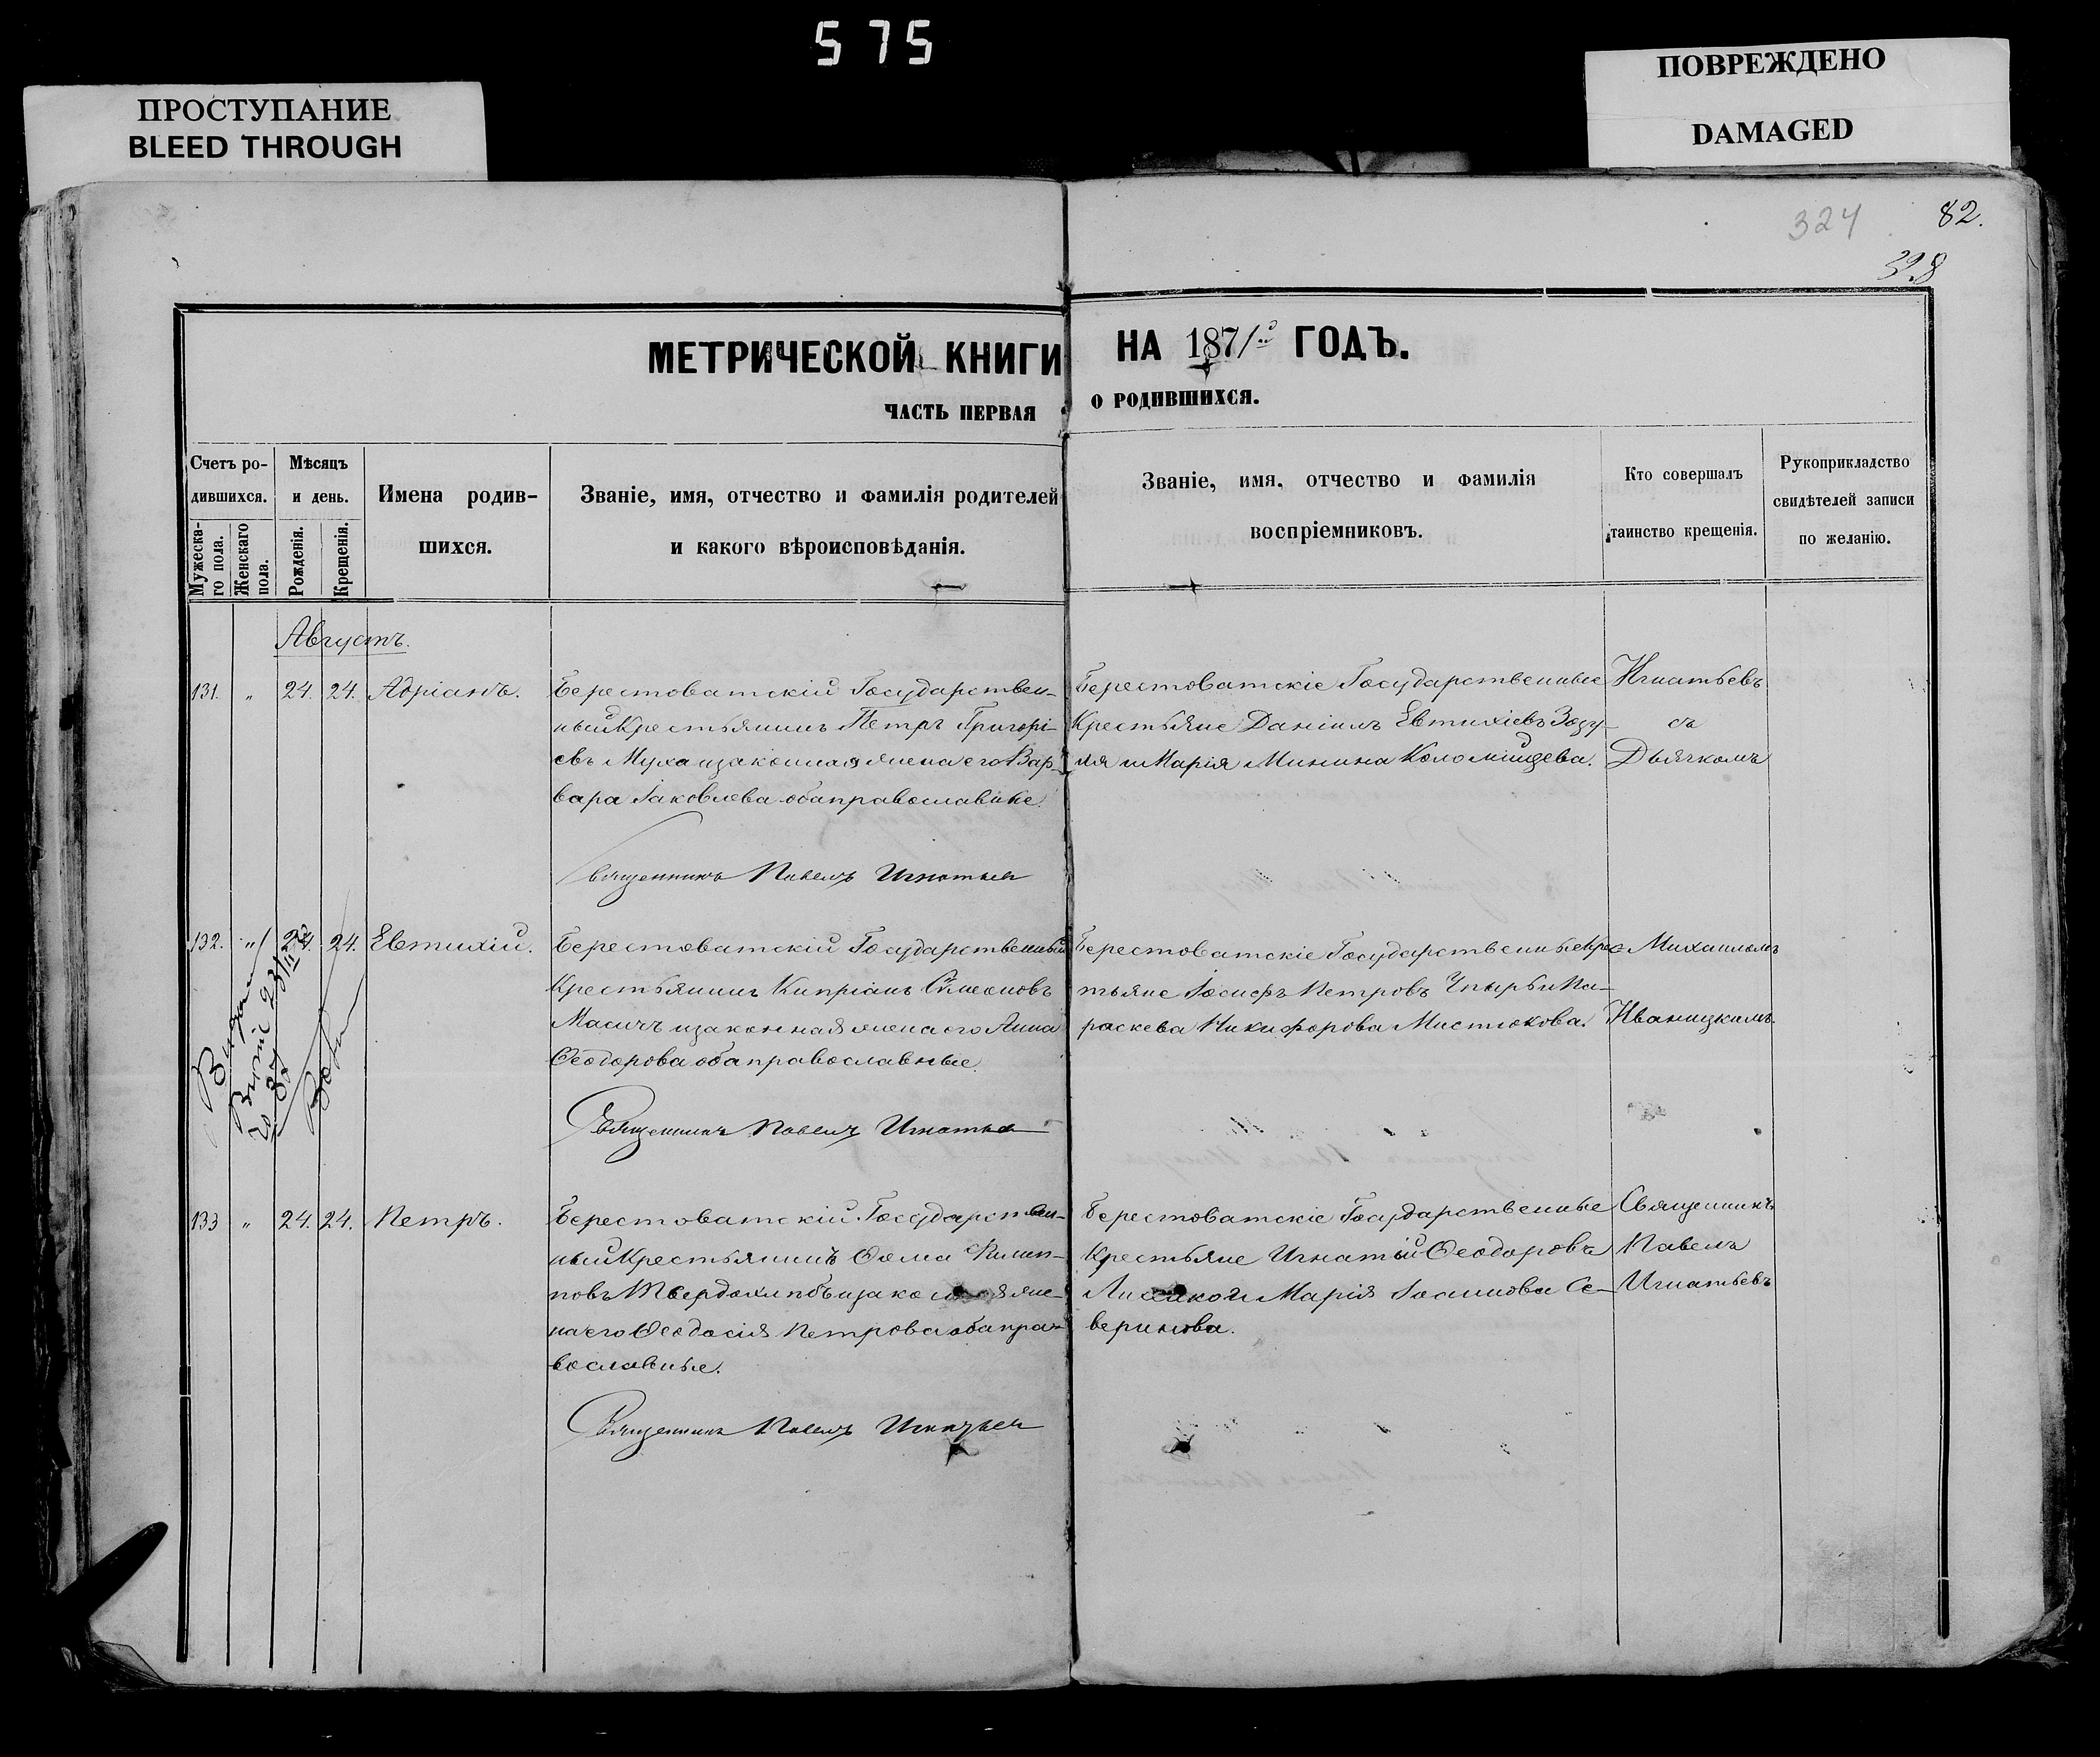 575
ПРОСТУПАНИЕ
BLEED THROUGH
ПОВРЕЖДЕНО
DAMAGED
324
82.
328
МЕТРИЧЕСКОЙ КНИГИ НА 1871 ГОДЪ.
ЧАСТЬ ПЕРВАЯ О РОДИВШИХСЯ.
Счетъ ро-
дившихся.
Мужеска-
го пола.
Женскаго
пола.
Мѣсяцъ
и день.
Рожденія.
Крещенія.
Имена родив-
шихся.
Званіе, имя, отчество и фамилія родителей
и какого вѣроисповѣданія.
Званіе, имя, отчество и фамилія
воспріемниковъ.
Кто совершалъ
таинство крещенія.
Рукоприкладство
свидѣтелей записи
по желанію.
Августъ.
131. „ 24. 24. Адріанъ.
Берестоватскій Государствен-
ный Крестьянинъ Петръ Григорі-
евъ Муха и законная жена его Вар-
вара Іаковлева оба православные.
Берестоватскіе Государственные
Крестьяне Даніилъ Евтихіевъ Зозу-
ля и Марія Минина Коломійцева.
Игнатьевъ
съ
Дьячкомъ
Священникъ Павелъ Игнатьев
132. „ 24. Евтихій.
Берестоватскій Государственный
Крестьянинъ Кипріанъ Симеоновъ
Масичъ и законная жена его Анна
Ѳеодорова оба православные.
Берестоватскіе Государственные Крес-
тьяне Іосифъ Петровъ Чпырь и Па-
раскева Никифорова Мистюкова.
Михаиломъ
Иваницкимъ.
Священникъ Павелъ Игнатьев
133 „ 24. 24. Петръ.
Берестоватскій Государствен-
ный Крестьянинъ Ѳома Филип-
повъ Твердохлѣбъ и законная же-
на его Ѳеодосія Петрова оба пра-
вославные.
Берестоватскіе Государственные
Крестьяне Игнатій Ѳеодоровъ
и Марія Іосифова Се-
веринова.
Священникъ
Павелъ
Игнатьевъ
Священникъ Павелъ Игнатьев